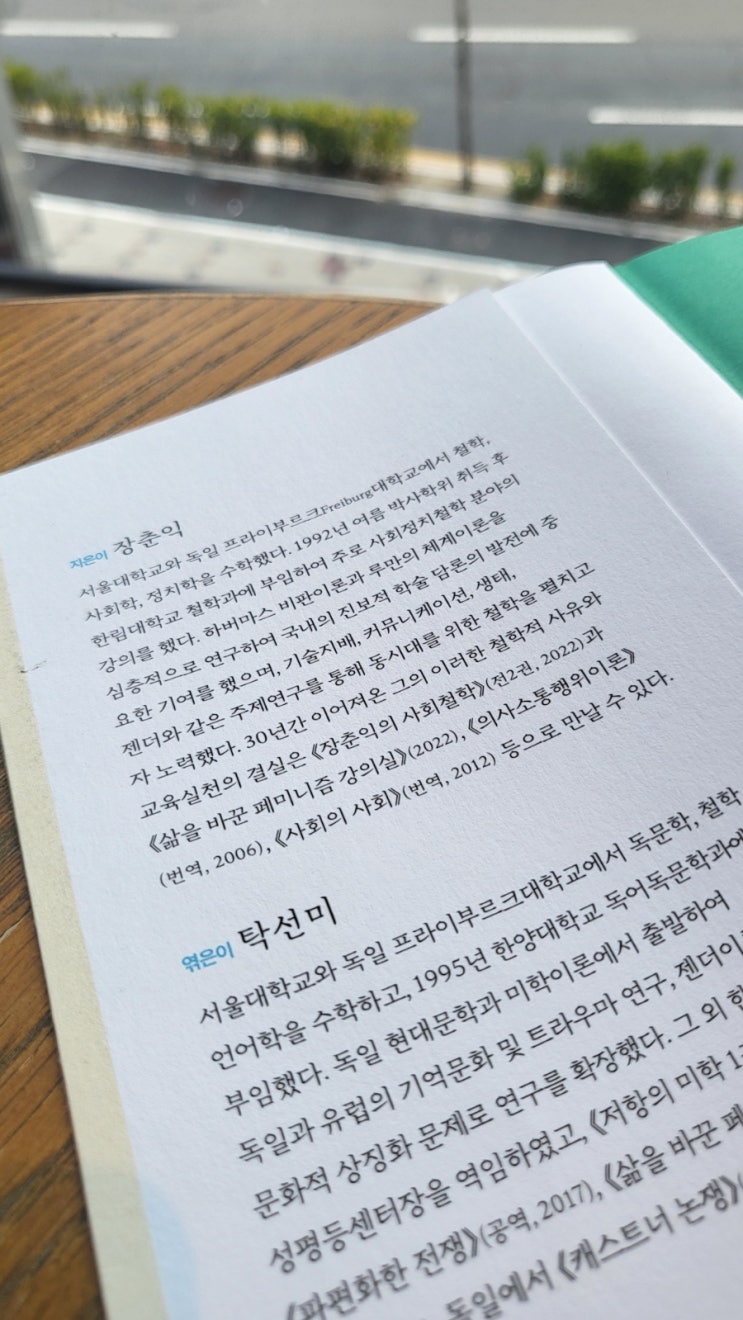 지은이 장춘익
서울대학교와 독일 프라이부르크Freiburg대학교에서 철학,
사회학, 정치학을 수학했다. 1992년 여름 박사학위 취득 후
한림대학교 철학과에 부임하여 주로 사회정치철학 분야의
강의를 했다. 하버마스 비판이론과 루만의 체계이론을
심층적으로 연구하여 국내의 진보적 학술 담론의 발전에 중
요한 기여를 했으며, 기술지배, 커뮤니케이션, 생태,
젠더와 같은 주제연구를 통해 동시대를 위한 철학을 펼치고
자 노력했다. 30년간 이어져온 그의 이러한 철학적 사유와
교육실천의 결실은 《장춘익의 사회철학》(전2권, 2022)과
《삶을 바꾼 페미니즘 강의실》(2022), 《의사소통행위이론》
(번역, 2006), 《사회의 사회》(번역, 2012) 등으로 만날 수 있다.
엮은이 탁선미
서울대학교와 독일 프라이부르크대학교에서 독문학, 철학
언어학을 수학하고, 1995년 한양대학교 독어독문학과에
부임했다. 독일 현대문학과 미학이론에서 출발하여
독일과 유럽의 기억문화 및 트라우마 연구, 젠더이
문화적 상징화 문제로 연구를 확장했다. 그 외 한
성평등센터장을 역임하였고, 《저항의 미학 1
《파편화한 전쟁》(공역, 2017), 《삶을 바꾼 페
독일에서 《캐스트너 논쟁》